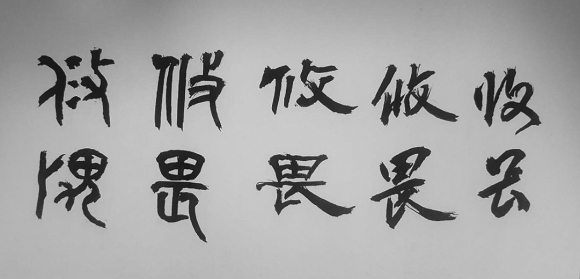 攸攸攸攸攸
畏畏畏畏畏